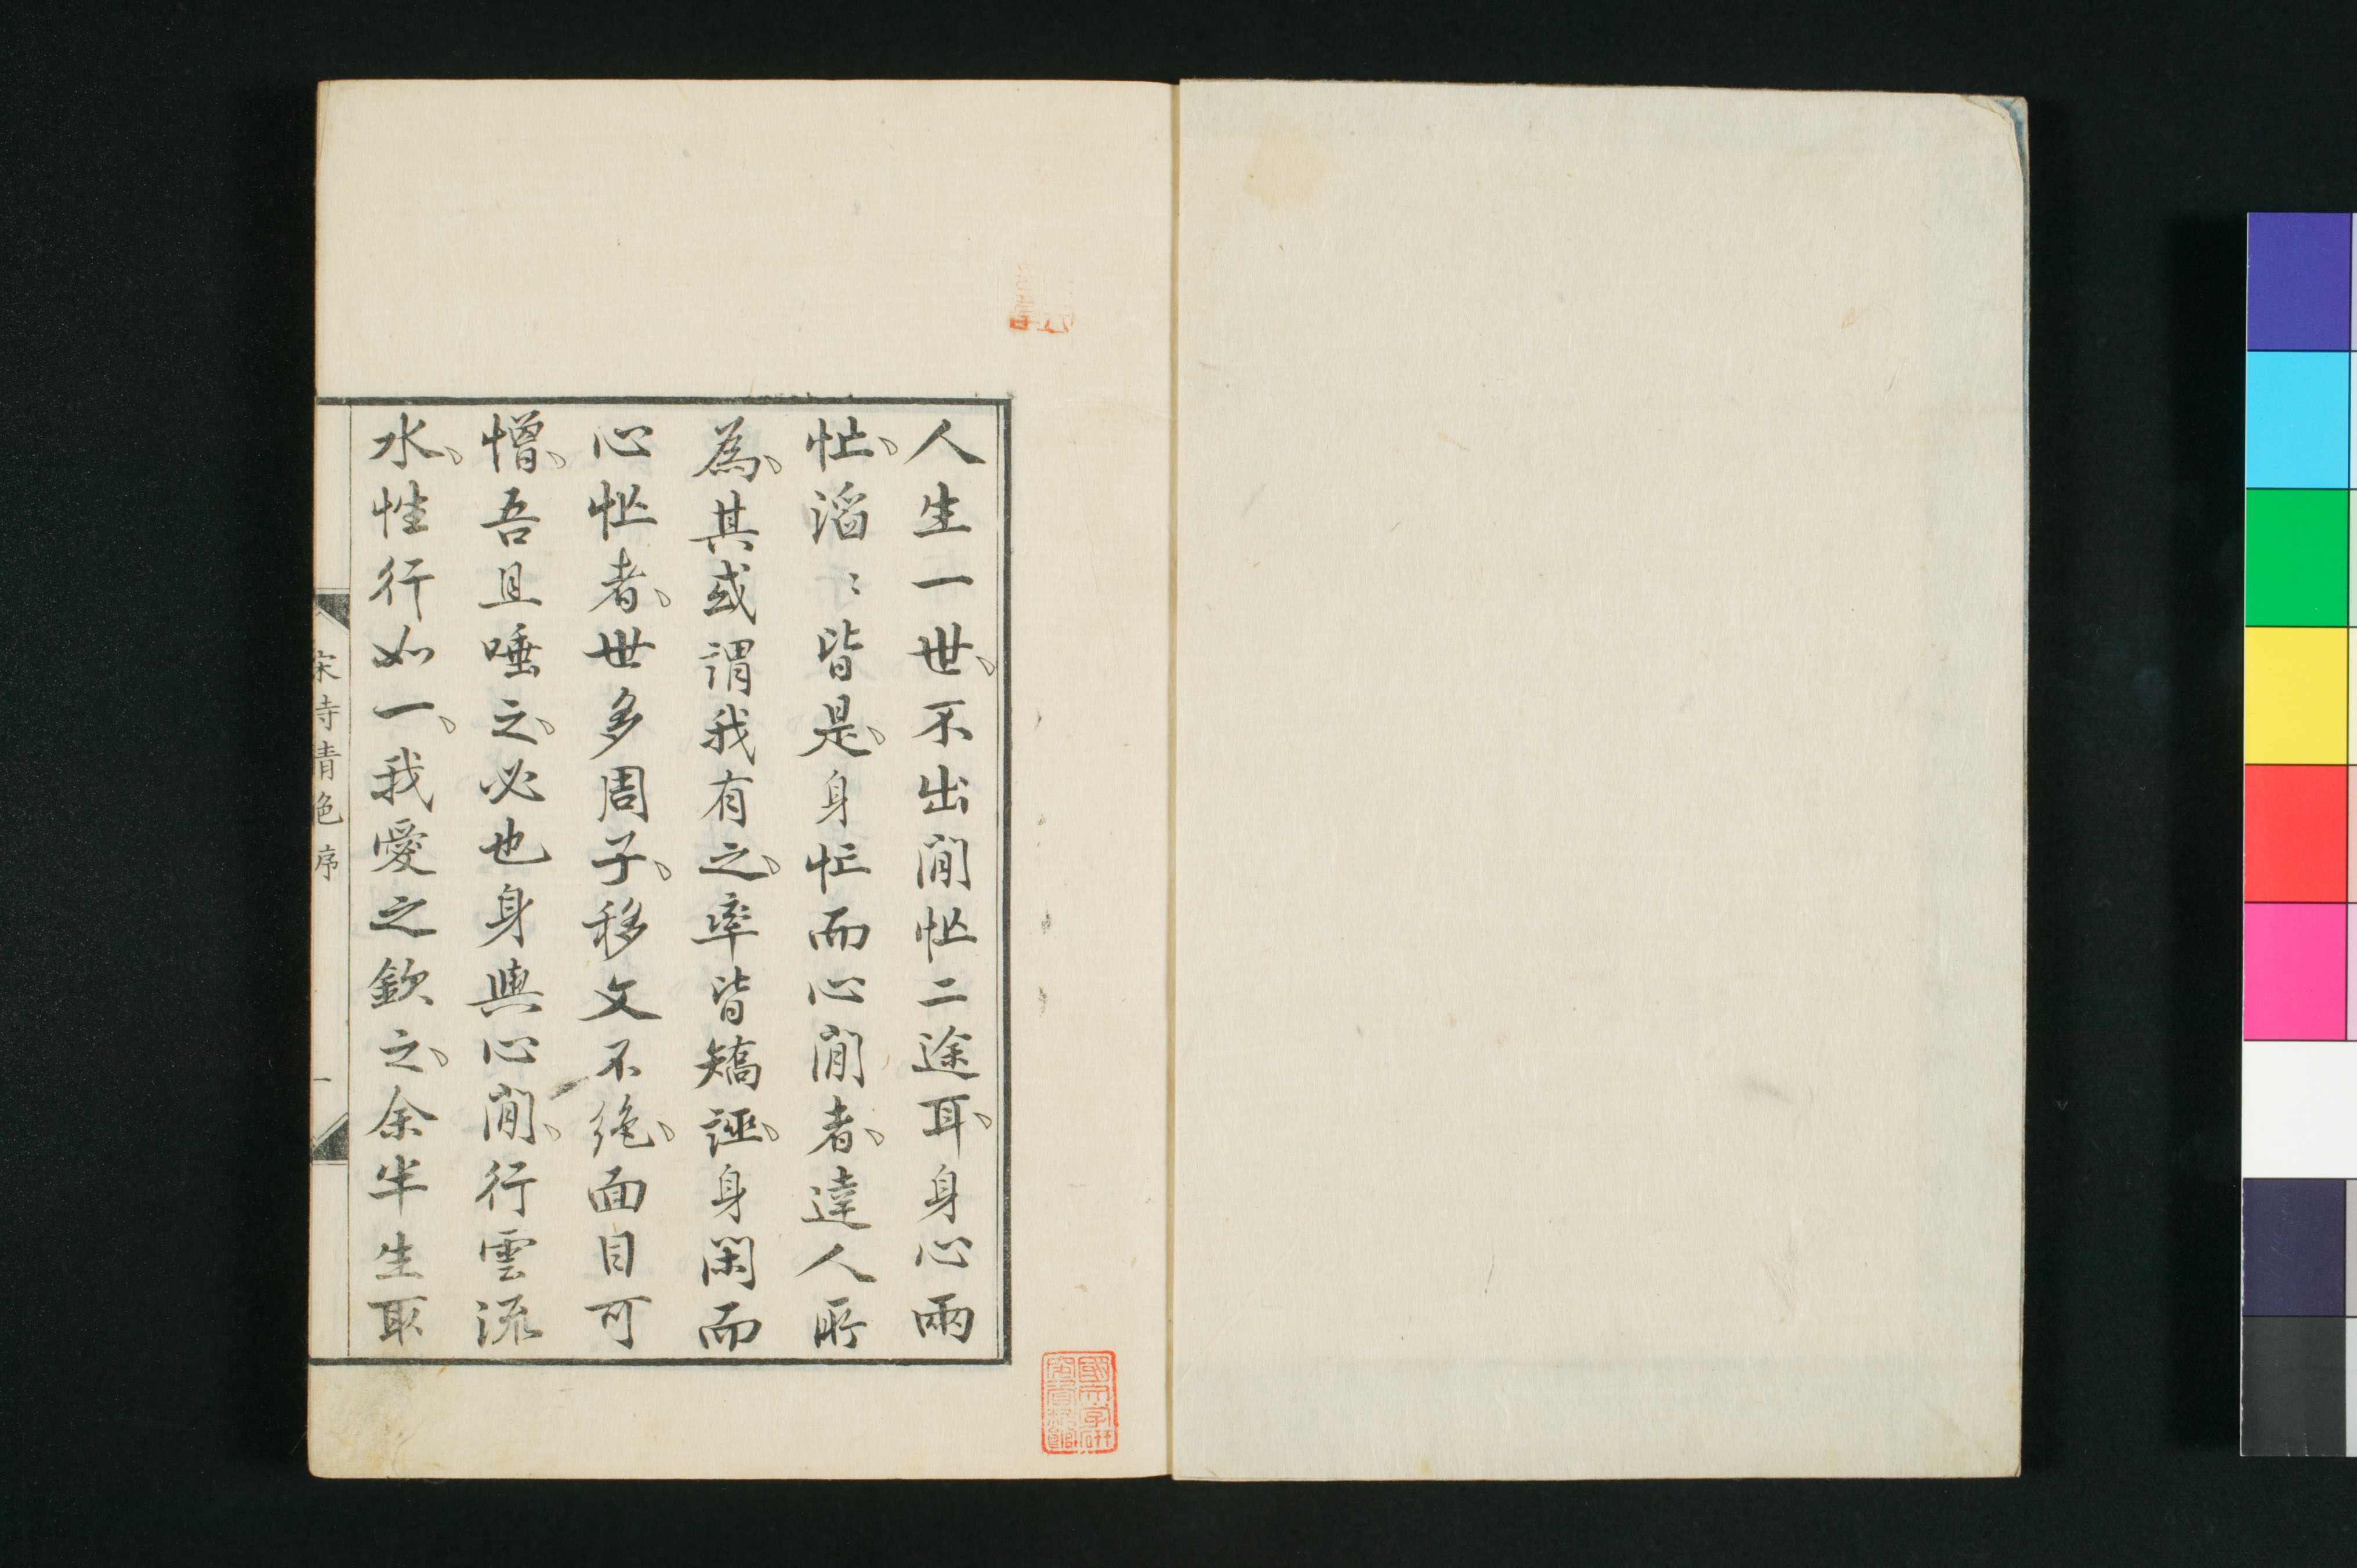 人生一世、不出閒忙二途耳、身心兩
忙、滔〻皆是、身忙而心閒者、達人所
為、其或謂我有之、率皆矯誣、身閑而
心忙者、世多周子、移文不絶、面目可
憎、吾且唾之、必也身與心閒、行雲流
水、性行如一、我愛之欽之、余半生取
宋詩清絶 序 一